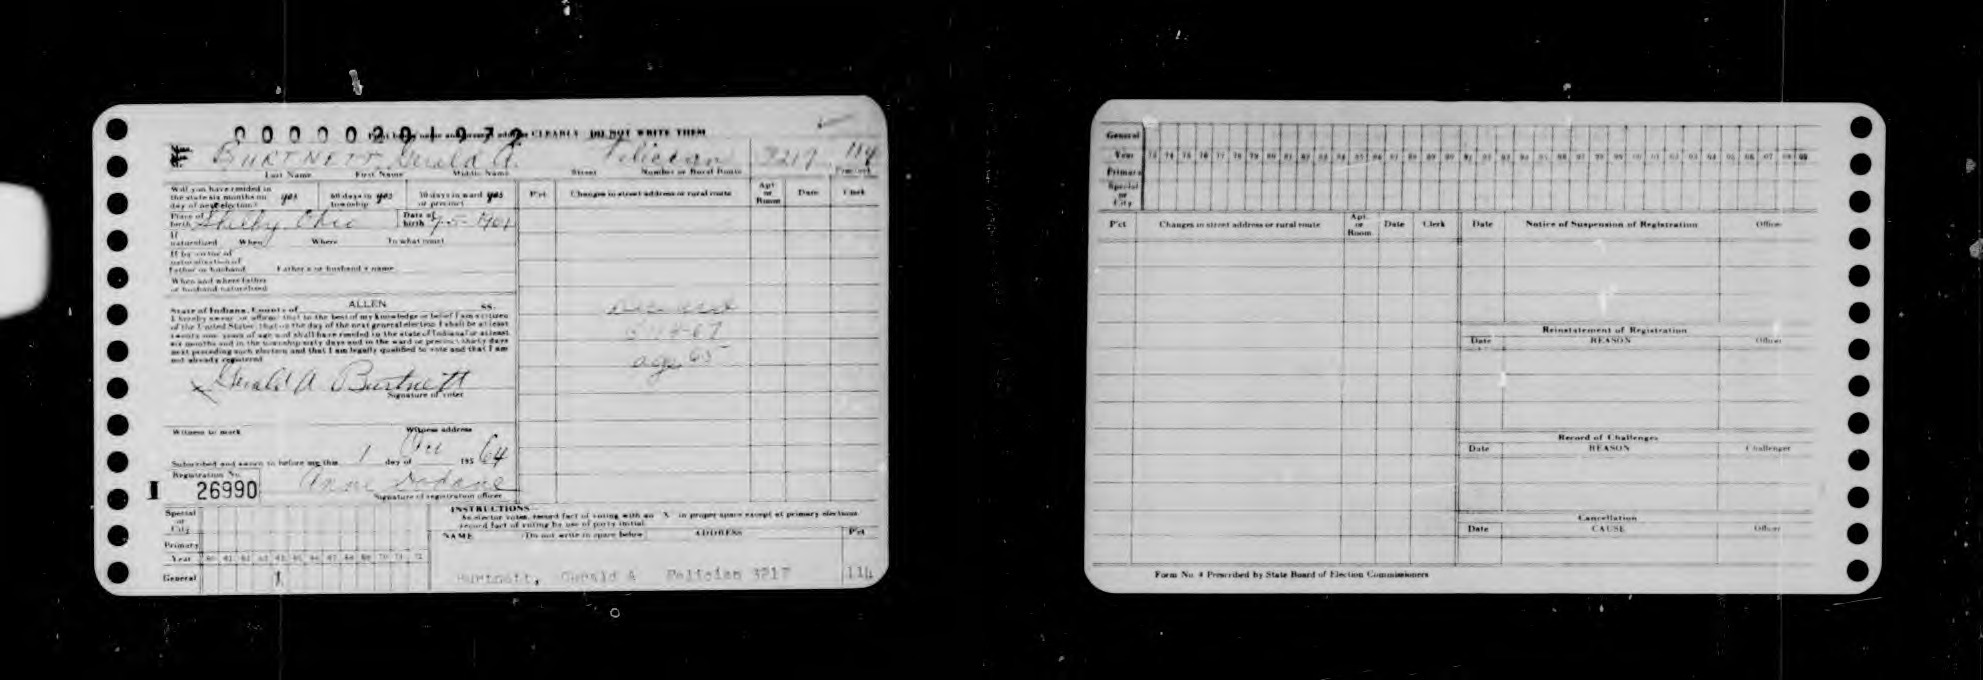 0000020197
CLEARLY DO NOT WRITE THEM
BURTNETT Gerald A. Felician 3217 114
Last Name First Name Middle Name Street Number or Rural Route Precinct
Will you have resided in the state six months on day of next election? yes 60 days in township yes 30 days in ward or precinct yes
P'ct Changes in street address or rural route Apt. or Room Date Clerk
Place of birth Shelby Ohio Date of birth
If naturalized When Where In what court
If by virtue of naturalization of Father or husband Father's or husband's name
When and where father or husband naturalized
State of Indiana, County of ALLEN SS.
I hereby swear or affirm that to the best of my knowledge or belief I am a citizen
of the United States, that on the day of the next general election I shall be at least
twenty one years of age and shall have resided in the state of Indiana for at least
six months and in the township sixty days and in the ward or precinct thirty days
next preceding such election and that I am legally qualified to vote and that I am
not already registered
deceased
67
age 63
Gerald A Burtnett
Signature of voter
Witness to mark Witness address
Subscribed and sworn to before me this 1 day of Oct 195 64
Registration No. 26990
Anne
Signature of registration officer
I
INSTRUCTIONS
As elector votes, record fact of voting with an X in proper space except at primary elections
record fact of voting by use of party initial.
Special or City
Primary
Year 60 61 62 63 64 65 66 67 68 69 70 71 72
General
NAME (Do not write in space below) ADDRESS P'ct
Burtnett, Gerald A Felician 3217 114
General
Year 73 74 75 76 77 78 79 80 81 82 83 84 85 86 87 88 89 90 91 92 93 94 95 96 97 98 99
Primary
Special or City
P'ct Changes in street address or rural route Apt. or Room Date Clerk
Date Notice of Suspension of Registration Officer
Reinstatement of Registration
Date REASON Officer
Record of Challenges
Date REASON Challenger
Cancellation
Date CAUSE Officer
Form No. 4 Prescribed by State Board of Election Commissioners